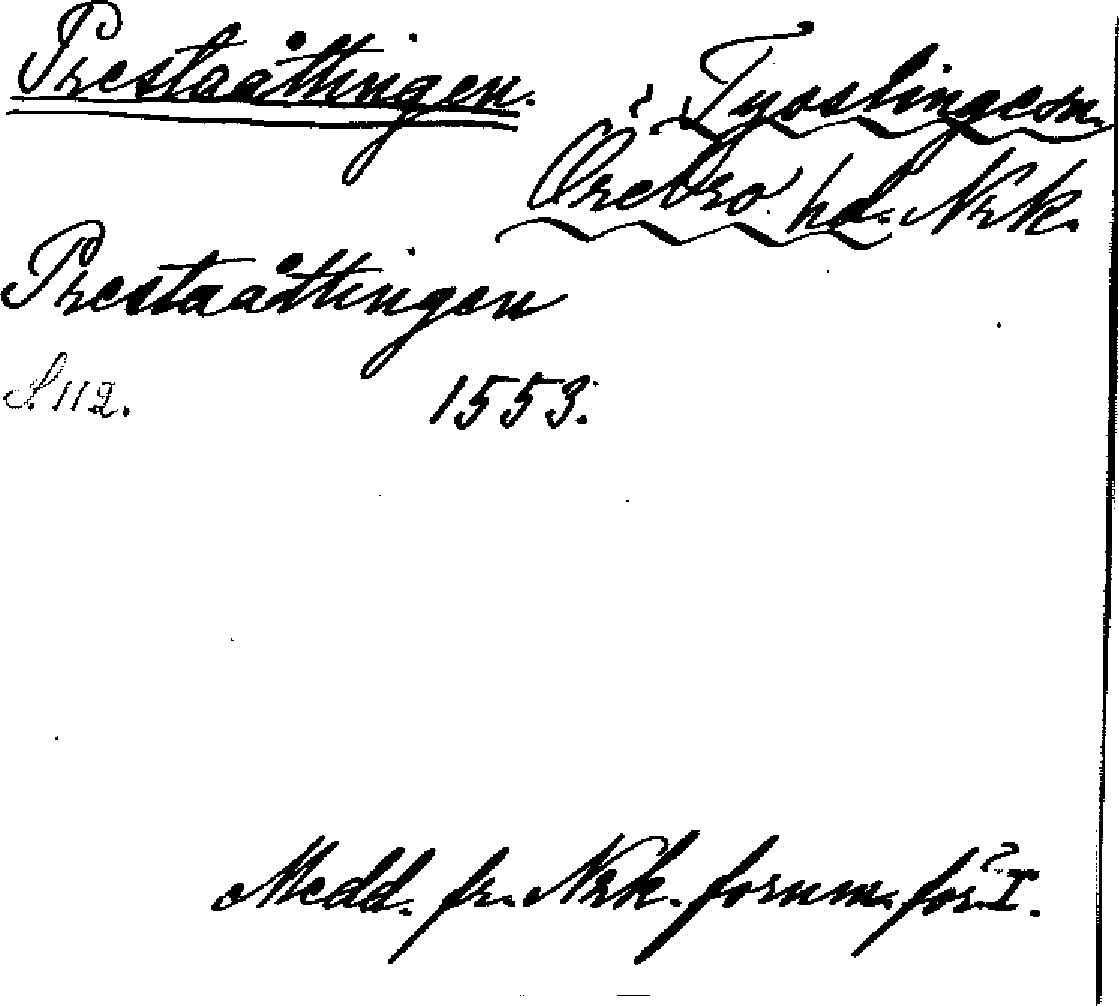 Prestaåttingen.
i Tysslinge sn.
Örebro hd. Nrk.
Prestaåttingen
S. 112. 1553.
Medd. fr. Nrk. fornm. för. I.